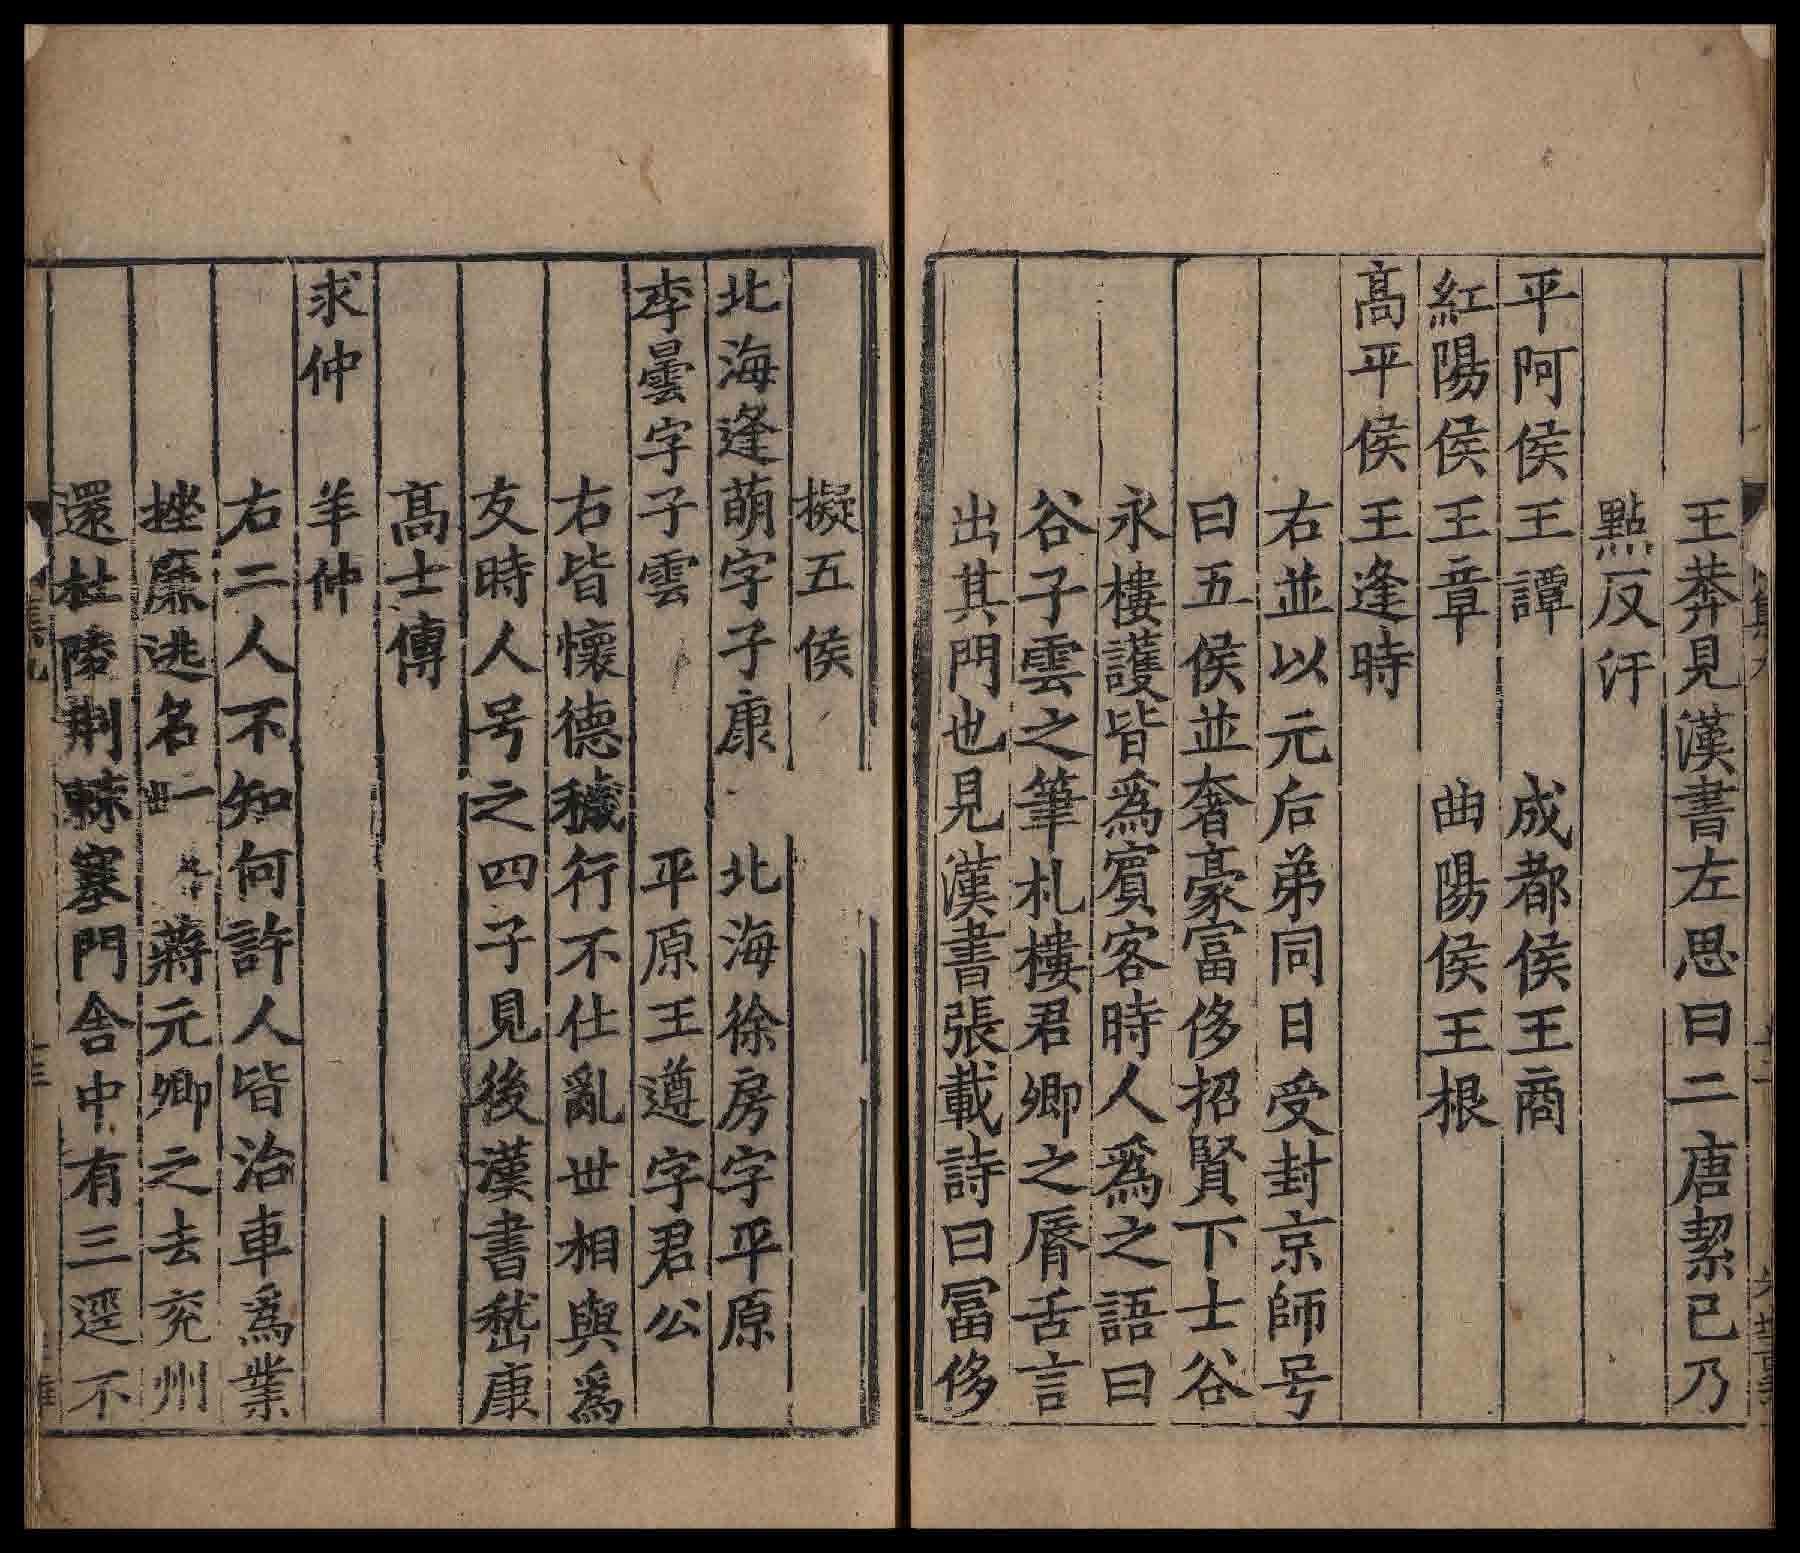 王莽見漢書左思曰二唐絜已乃
點反汙
平阿侯王譚 成都侯王商
紅陽侯王章 曲陽侯王根
髙平侯王逢時
右並以元后弟同日受封京師号
曰五侯並奢豪富侈招賢下士谷
永樓護皆爲賔客時人爲之語曰
谷子雲之筆札樓君卿之脣舌言
出其門也見漢書張載詩曰冨侈
擬五侯
北海逢萌字子康 北海徐房字平原
李曇字子雲 平原王遵字君公
右皆懷德穢行不仕亂世相與爲
友時人号之四子見後漢書嵇康
髙士傳
求仲 羊仲
右二人不知何許人皆治車爲業
挫廉逃名 蔣元卿之去兖州
還杜陵荆棘塞門舎中有三逕不